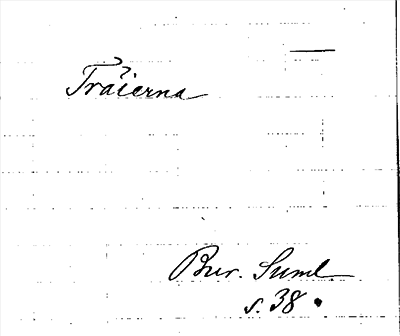 Träierna
Bur. Suml.
s. 38.